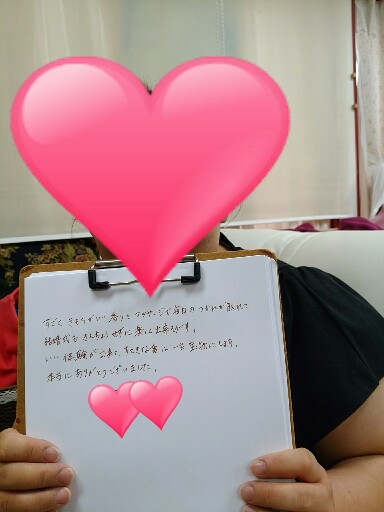 すごく きもちがいい 香りと マッサージで 毎日の つかれが取れて
結婚式も きんちょうせずに 楽しく出来そうです。
いい 体験が出来て、すてきな 会に
本当に ありがとうございました。